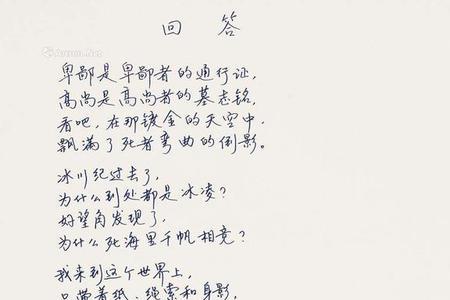 回 答
卑鄙是卑鄙者的通行证，
高尚是高尚者的墓志铭，
看吧，在那镀金的天空中，
飘满了死者弯曲的倒影。
冰川纪过去了，
为什么到处都是冰凌？
好望角发现了，
为什么死海里千帆相竞？
我来到这个世界上，
只带着纸、绳索和身影，